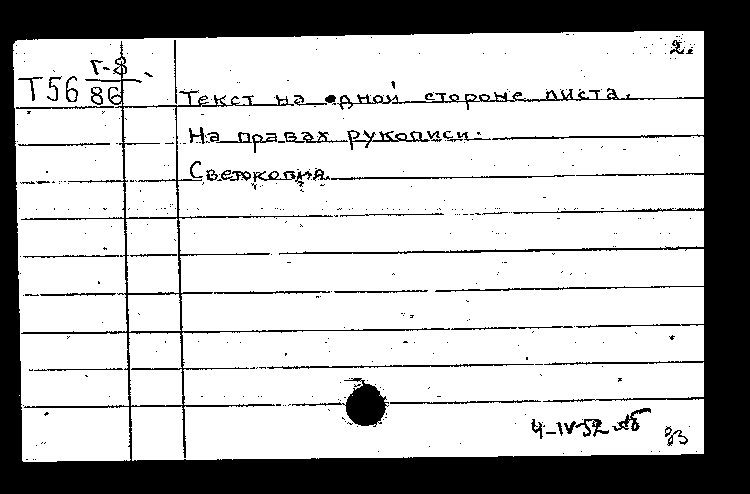 2.
Т56 Г-8
86
Текст на одной стороне листа.
На правах рукописи.
Светокопия.
4-IV-52